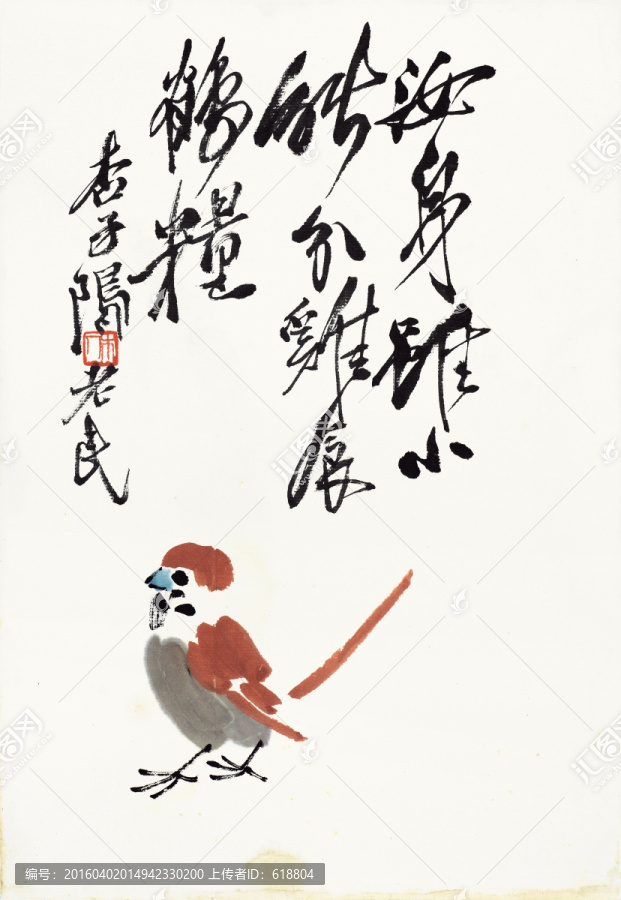 汝身雖小
能分雞
鶴糧
杏子隖老民
编号：20160402014942330200 上传者ID：618804
汇图网